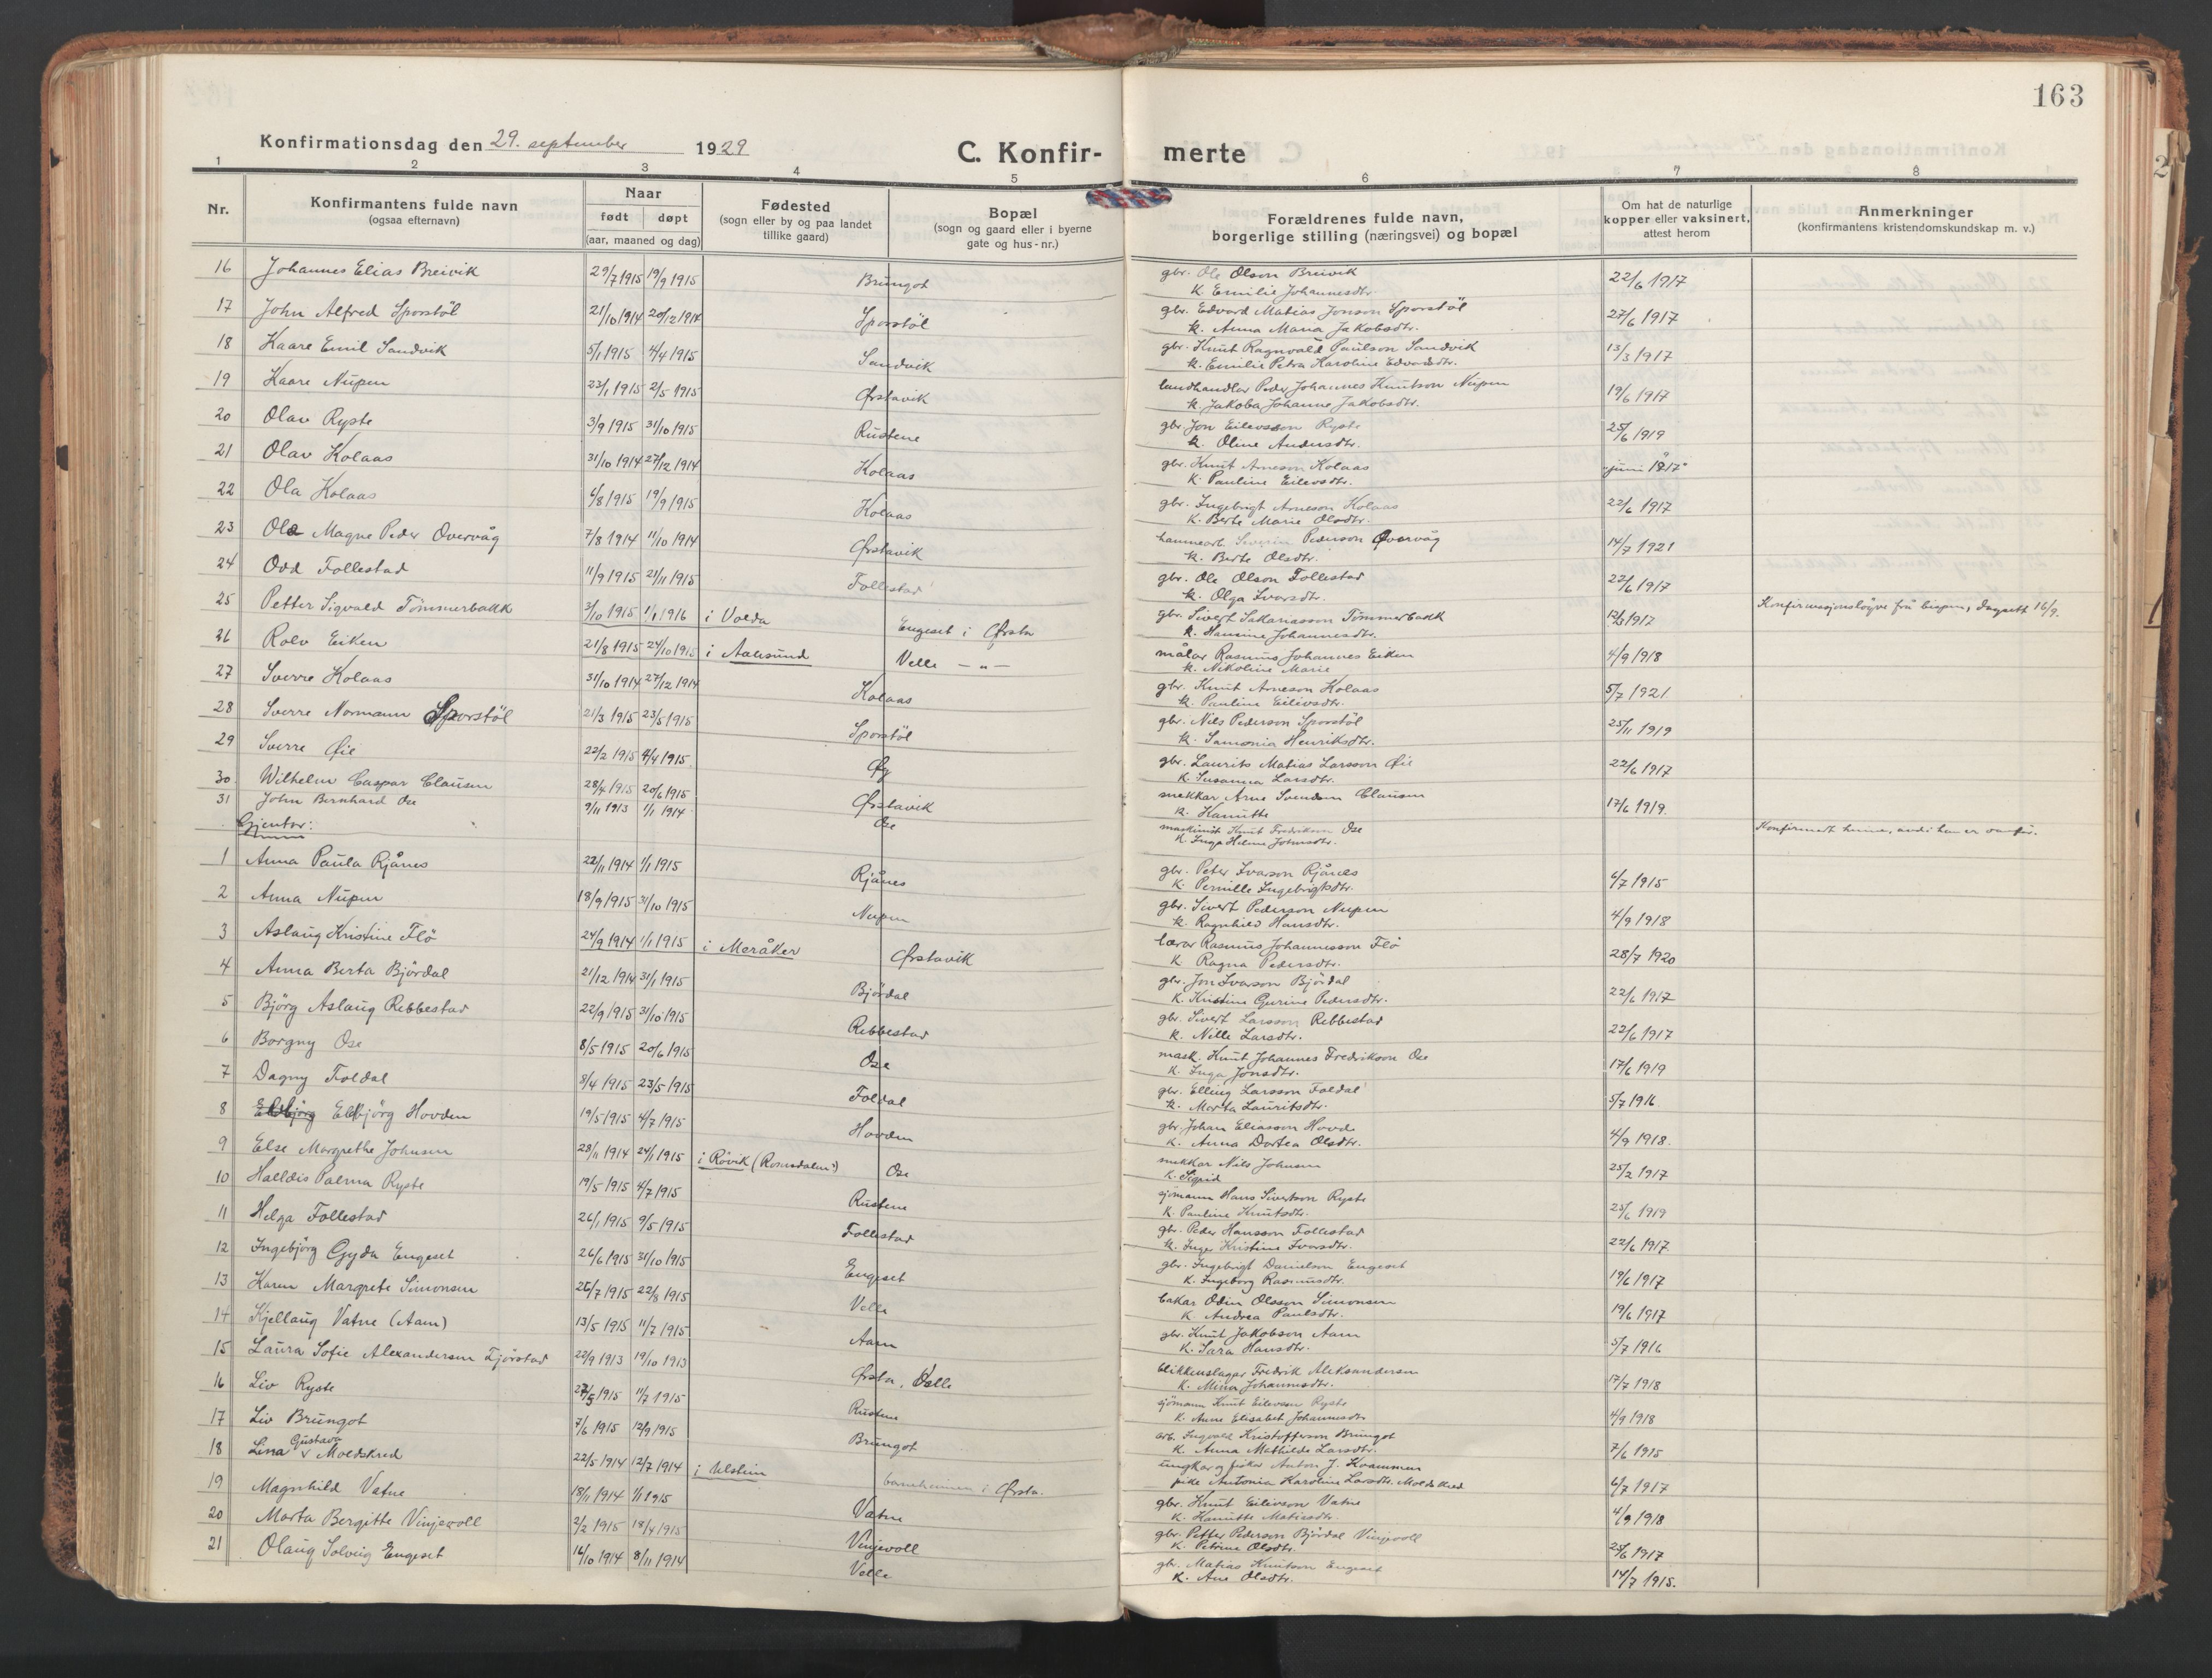 163
Konfirmationsdag den 29. september 1929
C. Konfir- merte
1 2 3 4 5 6 7 8
Nr.
Konfirmantens fulde navn
(ogsaa efternavn)
Naar
født døpt
(aar, maaned og dag)
Fødested
(sogn eller by og paa landet
tillike gaard)
Bopæl
(sogn og gaard eller i byerne
gate og hus-nr.)
Forældrenes fulde navn,
borgerlige stilling (næringsvei) og bopæl
Om hat de naturlige
kopper eller vaksinert,
attest herom
Anmerkninger
(konfirmantens kristendomskundskap m. v.)
16 Johannes Elias Breivik 29/7 1915 19/9 1915 Brungot gbr. Ole Olson Breivik 22/6 1917
k. Emilie Johannesdtr.
17 John Alfred Sporstöl 21/10 1914 20/12 1914 Sporstöl gbr. Edvard Matias Jonson Sporstöl 27/6 1917
k. Anna Maria Jakobsdtr.
18 Kaare Emil Sandvik 5/1 1915 4/4 1915 Sandvik gbr. Knut Ragnvald Paulson Sandvik 13/3 1917
k. Emilie Petra Karoline Edvardsdtr.
19 Kaare Nupen 23/1 1915 2/5 1915 Ørstavik landhandlar Peder Johannes Knutson Nupen 19/6 1917
k. Jakoba Johanne Jakobsdtr.
20 Olav Ryste 3/9 1915 31/10 1915 Rustene gbr. Jon Eilevsson Ryste 25/6 1919
k. Oline Andersdtr.
21 Olav Kolaas 31/10 1914 27/12 1914 Kolaas gbr. Knut Arneson Kolaas juni 1917
k. Pauline Eilevsdtr.
22 Ola Kolaas 6/8 1915 19/9 1915 Kolaas gbr. Ingebrigt Arneson Kolaas 22/6 1917
k. Berte Marie Olsdtr.
23 Ola Magne Peder Overvåg 7/8 1914 11/10 1914 Ørstavik hamnearb. Severin Pederson Overvåg 14/7 1921
k. Berte Olsdtr.
24 Odd Follestad 11/9 1915 21/11 1915 Follestad gbr. Ole Olson Follestad 22/6 1917
k. Olga Ivarsdtr.
25 Petter Sigvald Tømmerbakk 3/10 1915 1/1 1916 i Volda Engeset i Ørsta gbr. Sivert Sakariasson Tømmerbakk 1917 Konfirmasjonsløyve frå bispen, dagsett 16/9.
k. Hansine Johannesdtr.
26 Rolv Eiken 21/8 1915 24/10 1915 i Aalesund Velle — " — målar Rasmus Johannes Eiken 4/9 1918
k. Nikoline Marie
27 Sverre Kolaas 31/10 1914 27/12 1914 Kolaas gbr. Knut Arneson Kolaas 5/7 1921
k. Pauline Eilevsdtr.
28 Sverre Normann Sporstöl 21/3 1915 23/5 1915 Sporstöl gbr. Nils Pederson Sporstöl 25/11 1919
k. Samonia Henriksdtr.
29 Sverre Øie 22/2 1915 4/4 1915 Øy gbr. Laurits Matias Larsson Øie 22/6 1917
k. Susanna Larsdtr.
30 Wilhelm Caspar Clausen 28/4 1915 20/6 1915 Ørstavik snekkar Arne Svendsen Clausen 17/6 1919
k. Hanutte
31 John Bernhard Ose 9/11 1913 1/1 1914 Ose maskinist Knut Fredrikson Ose
k. Inga Helene Johnsdtr.
Gjentor:
1 Anna Paula Rjånes 22/11 1914 1/1 1915 Rjånes gbr. Peter Ivarson Rjånes 6/7 1915
k. Pernille Ingebrigtsdtr.
2 Anna Nupen 18/9 1915 31/10 1915 Nupen gbr. Sivert Pederson Nupen 4/9 1918
k. Ragnhild Hansdtr.
3 Aslaug Kristine Flö 24/9 1914 1/1 1915 i Meråker Ørstavik lærar Rasmus Johannesson Flö 28/7 1920
k. Ragna Pedersdtr.
4 Anna Berta Björdal 21/12 1914 31/1 1915 Björdal gbr. Jon Ivarson Björdal 22/6 1917
k. Kristine Gurine Pedersdtr.
5 Björg Aslaug Rebbestad 22/9 1915 31/10 1915 Rebbestad gbr. Sivert Larsson Rebbestad 22/6 1917
k. Nille Larsdtr.
6 Borgny Ose 8/5 1915 20/6 1915 Ose mask. Knut Johannes Fredrikson Ose 17/6 1919
k. Inga Jonsdtr.
7 Dagny Foldal 8/4 1915 23/5 1915 Foldal gbr. Elling Larsson Foldal 5/7 1916
k. Marta Lauritsdtr.
8 Eldbjörg Hovden 19/5 1915 4/7 1915 Hovden gbr. Johan Eliasson Hovde 4/9 1918.
k. Anna Dortea Olsdtr.
9 Else Margrethe Johnsen 28/11 1914 24/1 1915 i Rövik (Romsdalen) Ose snekkar Nils Johnsen 25/2 1917
k. Sigrid
10 Halldis Palma Ryste 19/5 1915 4/7 1915 Rustene sjömann Hans Sivertson Ryste 25/6 1919
k. Pauline Knutsdtr.
11 Helga Follestad 26/1 1915 9/5 1915 Follestad gbr. Peder Hansson Follestad 22/6 1917
k. Inger Kristine Ivarsdtr.
12 Ingebjörg Gyda Engeset 26/6 1915 31/10 1915 Engeset gbr. Ingebrigt Danielson Engeset 19/6 1917
k. Ingeborg Rasmusdtr.
13 Karen Margrete Simonsen 25/7 1915 22/8 1915 Velle bakar Odin Olsson Simonsen 19/6 1917
k. Andrea Paulsdtr.
14 Kjellaug Vatne (Aam) 13/5 1915 11/7 1915 Aam gbr. Knut Jakobson Aam 5/7 1916
k. Sara Hansdtr.
15 Laura Sofie Alexandersen 22/9 1913 19/10 1913 Ørsta, Velle blikkenslager Fredrik Aleksandersen 17/7 1918
k. Mina Johannesdtr.
16 Liv Ryste 1915 11/7 1915 Rustene sjömann Knut Eilevson Ryste 4/9 1918
k. Anne Elisabet Johannesdtr
17 Liv Brungot 7/6 1915 12/9 1915 Brungot arb. Ingvald Kristofferson Brungot 7/6 1915
k. Anna Mathilde Larsdtr.
18 Lina Gustava Moldskred 22/5 1914 12/7 1914 i Ulstein barnheimen i Ørsta. ungkar og fiskar Anton J. Kvammen 6/7 1917
pike Antonia Karoline Larsdtr. Moldskred
19 Magnhild Vatne 18/11 1914 1/1 1915 Vatne gbr. Knut Eilevson Vatne 4/9 1918
k. Hanutte Matiasdtr.
20 Marta Bergitte Vinjevoll 2/2 1915 18/4 1915 Vinjevoll gbr. Petter Pederson Björdal Vinjevoll 25/6 1917
k. Petrine Olsdtr.
21 Olaug Solveig Engeset 16/10 1914 8/11 1914 Velle gbr. Matias Knutson Engeset 14/7 1915.
k. Ane Olsdtr.